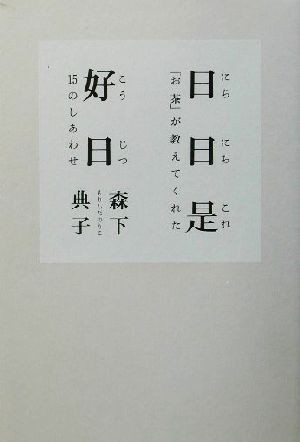 日日是
にちにちこれ
「お茶」が教えてくれた
好日
こうじつ
15のしあわせ
森下
典子
もりしたのりこ